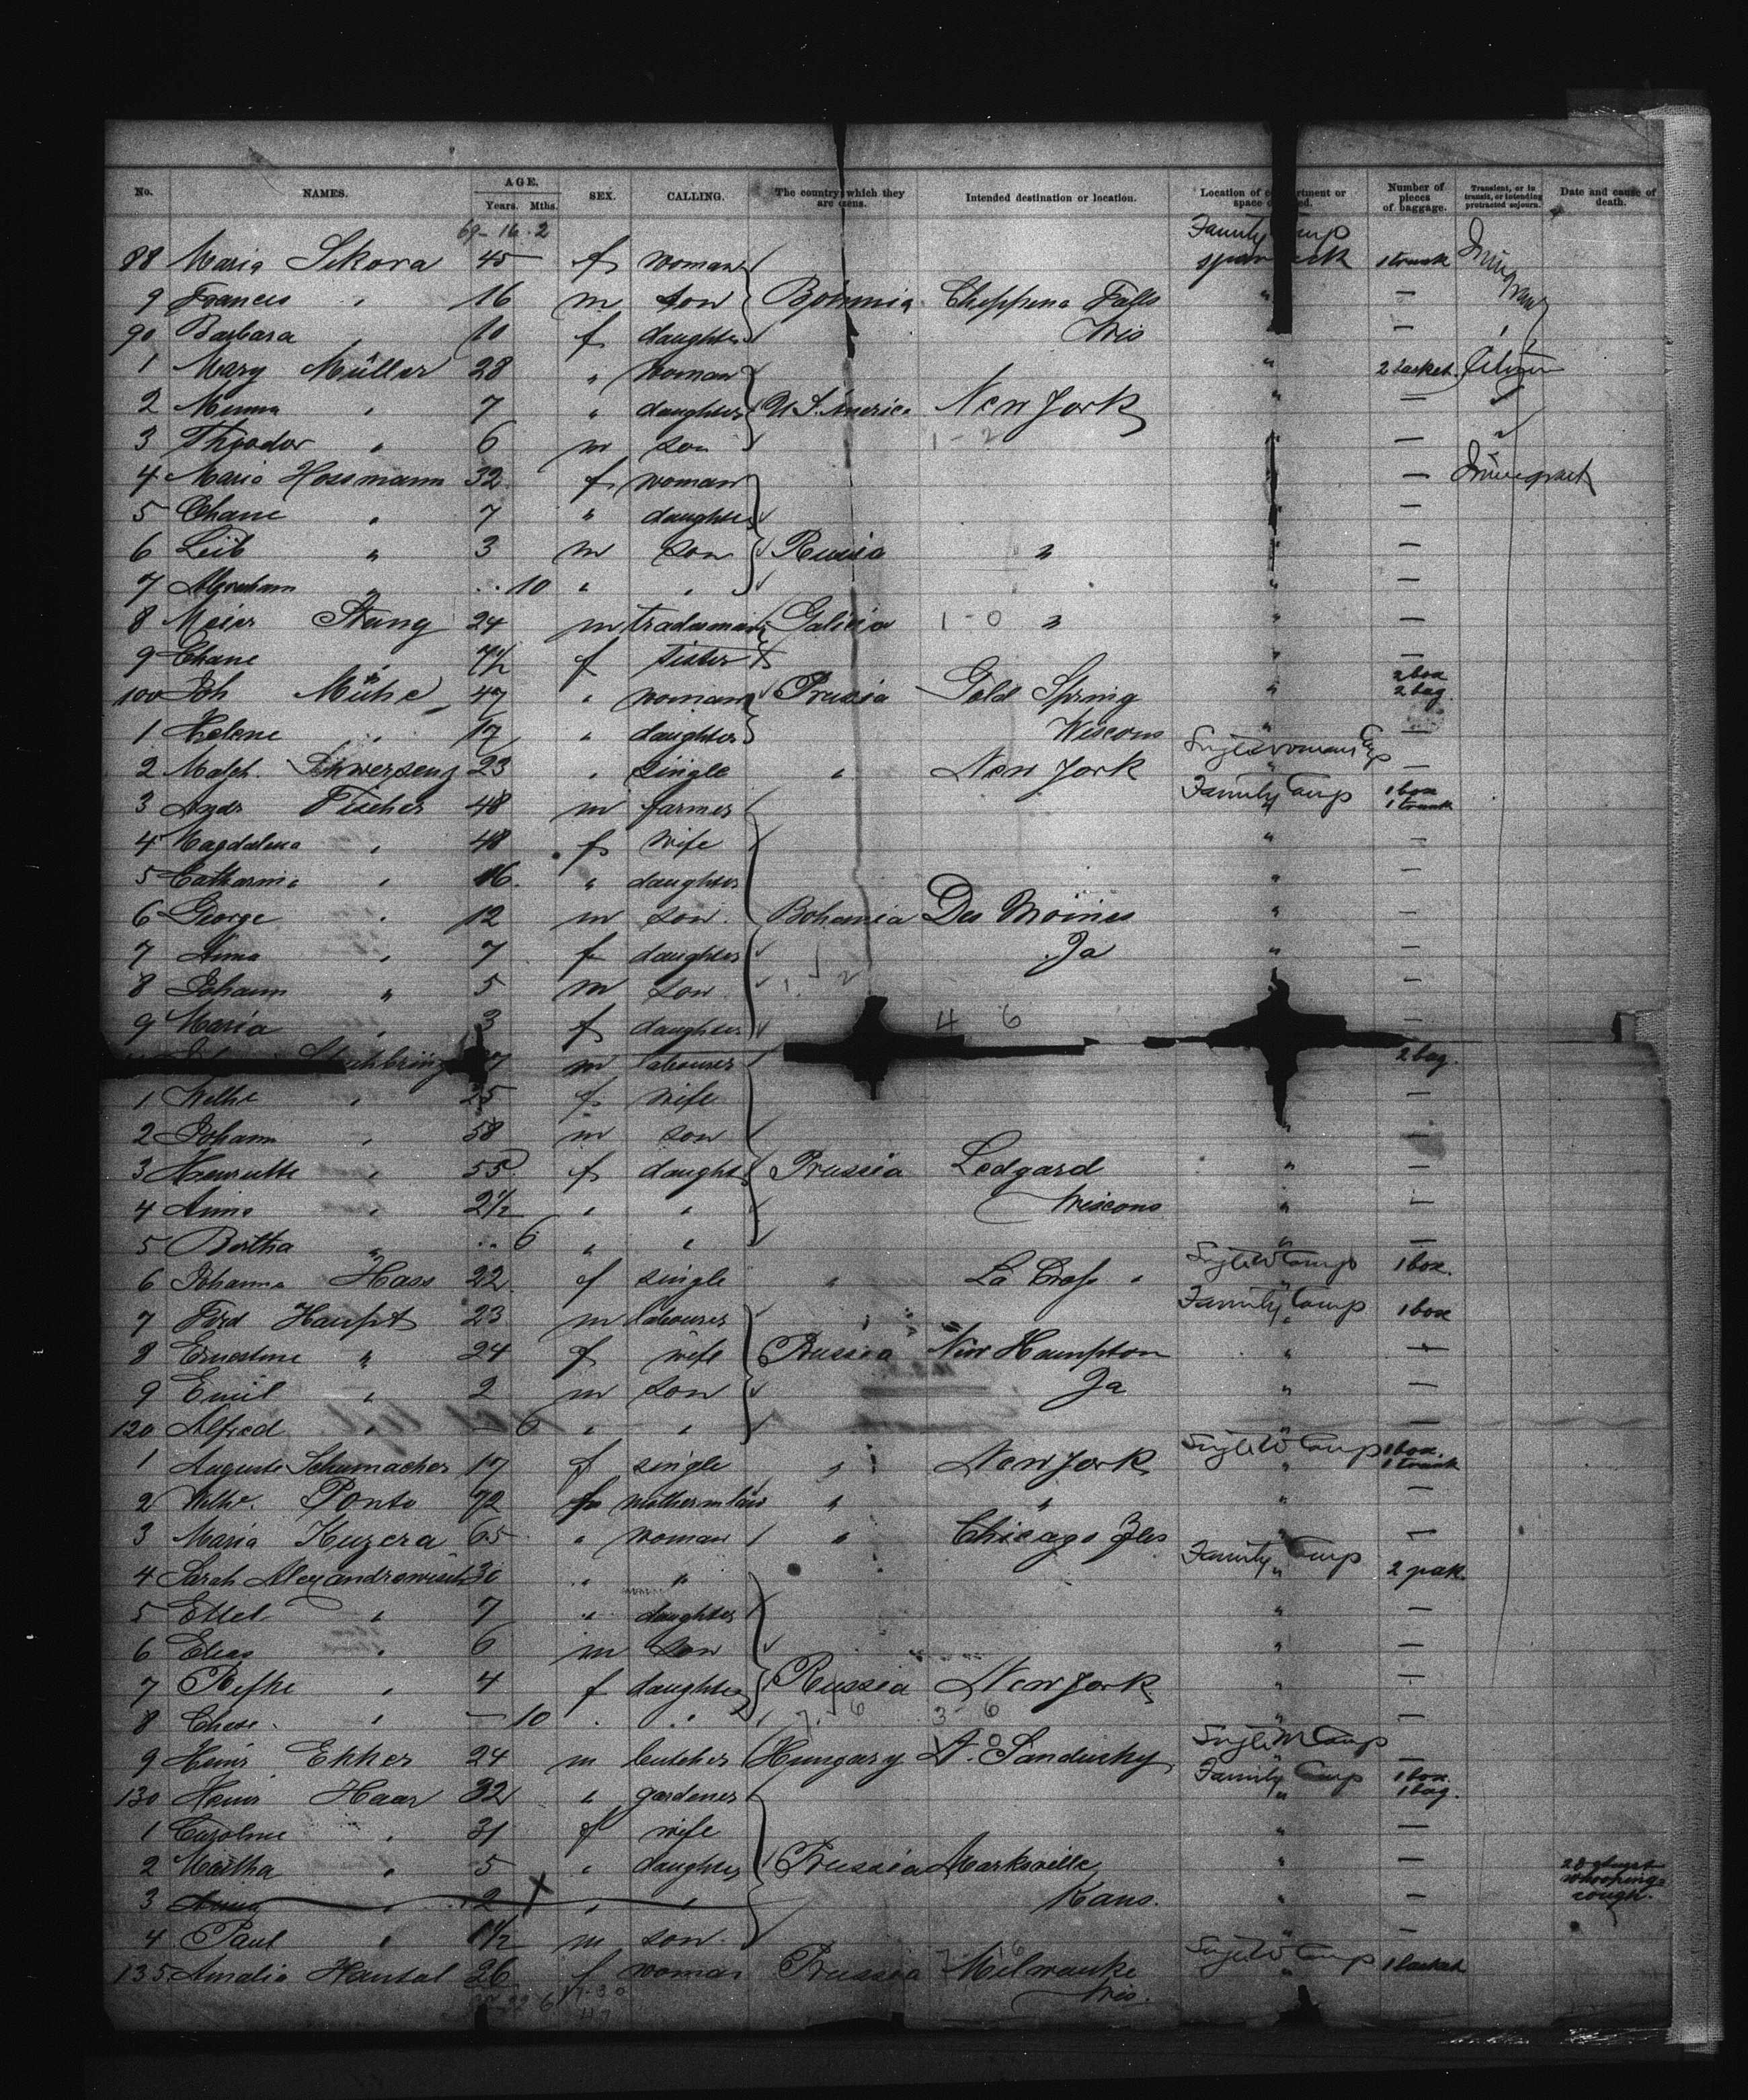 No. NAMES. AGE. Years. Mths. SEX. CALLING. The country which they are Intended destination or location. Location of space Number of pieces of baggage. Transient, or in transit, or intending protracted sojourn. Date and cause of death.
69 - 16 . 2 Family
88 Maria Sikora 45 f woman 1 trunk
9 Frances " 16 m son Bohemia Cheppena Falls " —
90 Barbara " 10 f daughter Wis —
1 Mary Müller 28 " woman " 2 basket
2 Minna " 7 " daughter U S. America New York " —
3 Theodor " 6 m son 1 - 2 " —
4 Maria Hossmann 32 f woman " —
5 Chane " 7 " daughter " —
6 Leib " 3 m son Russia " " —
7 Abraham " .. 10 " " " —
8 Meier Stang 24 m tradesman Galicia 1 - 0 " " —
9 Chane " f sister " —
100 Joh Mühe 47 " woman Prussia Gold Spring " 2 box 2 bag.
1 Helene " 17 " daughter Wiscons " —
2 Malch. 23 " single " New York Single womans —
3 Andr Fischer 48 m farmer Family Comp 1 box 1 trunk
4 Magdalena " 48 f wife " —
5 Catharina " 16 " daughter " —
6 George " 12 m son Bohemia Des Moines " —
7 Anna " 7 f daughter Ja " —
8 Johann " 5 m son " —
9 Maria " 3 f daughter 4 6 —
m labourer 2 bag.
1 Wilhe " 25 f wife —
2 Johann " 58 m son " —
3 Henriette " 55 f daught Prussia Ledgard " —
4 Anna " 2 1/2 " " Wiscons " —
5 Bertha " .. 6 " " " —
6 Johanna Hass 22 f single " La Cross " Single W Comp 1 box.
7 Ferd Haupt 23 m labourer Family Comp 1 box
8 Ernestine " 24 f wife Prussia New Hampton " —
9 Emil " 2 m son Ja " —
120 Alfred " — 6 " " " —
1 Auguste Schumacher 17 f single " New York Single W Comp 1 box. 1 trunk
2 Wilhe. Ponto 72 f mother in law " " " —
3 Maria Kuzera 65 " woman " Chicago Jlls " —
4 Sarah Alexandrowisch 30 " " Family Comp 2 pak.
5 Ettel " 7 " daughter " —
6 Elias " 6 m son " —
7 Refke " 4 f daughter Russia New York " —
8 Chese " — 10 " " 3 - 6 " —
9 Heinr Ekker 24 m butcher Hungary Sandusky Single M Comp —
130 Heinr Haar 32 " gardener Family Comp 1 box. 1 bag.
1 Caroline " 31 f wife " —
2 Martha " 5 " daughter Prussia Marksville " —
3 Anna " 2 " " Kans. " — whooping cough.
4 Paul " 1 1/2 m son " —
135 Amalia Hantal 26 f woman Prussia Milwauke Single W Comp 1 basket
Wis.